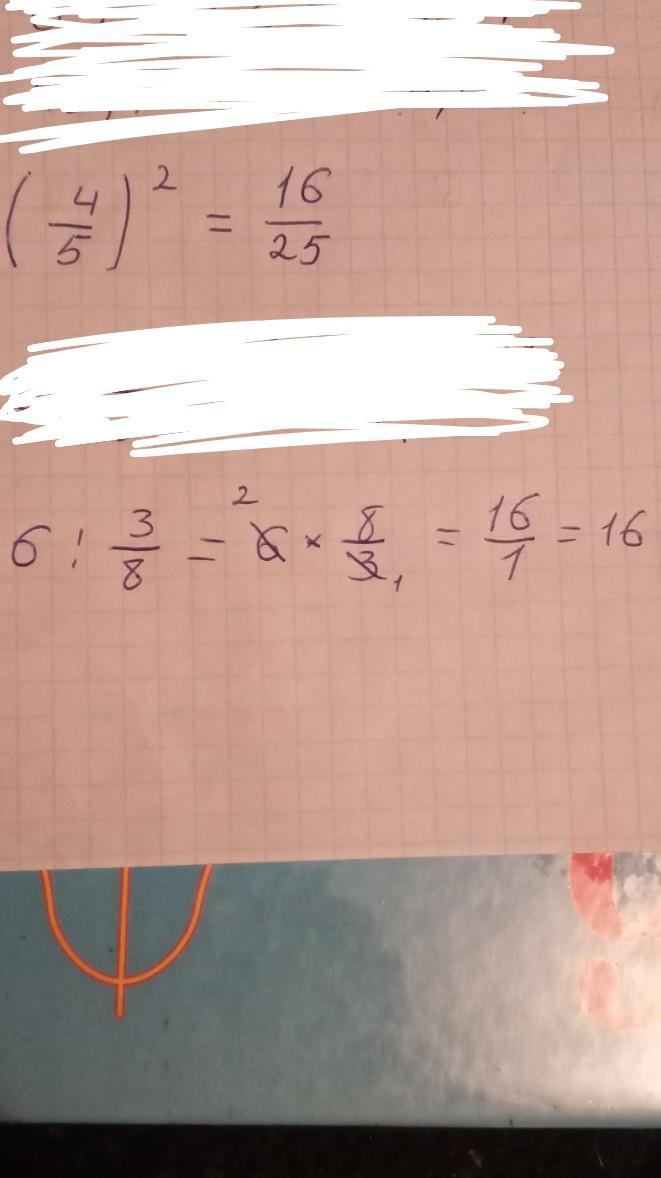 (4/5)² = 16/25
6 : 3/8 = 6 2 × 8/3 1 = 16/1 = 16